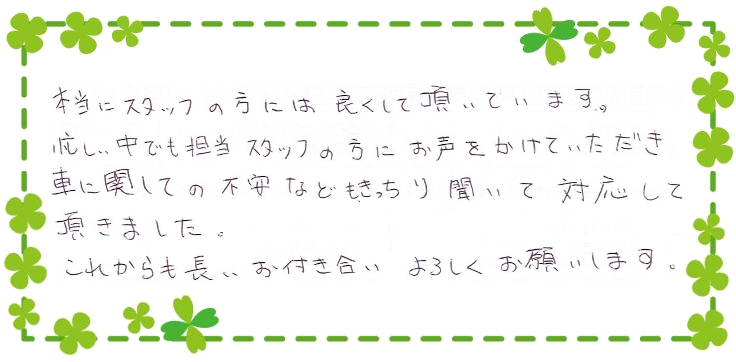 本当にスタッフの方には良くして頂いています。
忙しい中でも担当スタッフの方にお声をかけていただき
車に関しての不安などもきっちり聞いて対応して
頂きました。
これからも長いお付き合いよろしくお願いします。